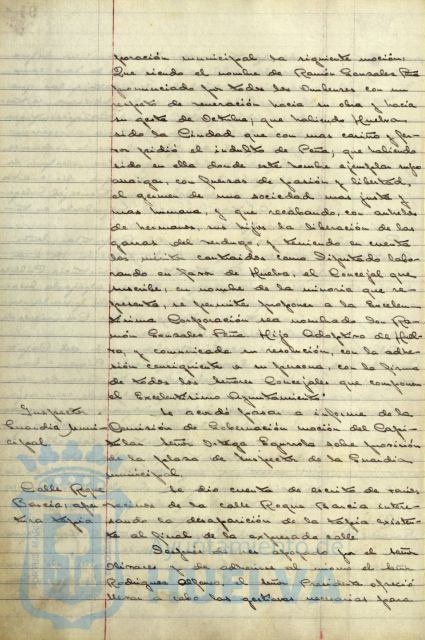 poración municipal la siguiente moción:
Que siendo el nombre de Ramón Gonzales Peña
pronunciado por todos los Onubenses con un
respeto de veneración hacia su obra y hacia
su gesto de Octubre; que habiendo Huelva
sido la Ciudad que con mas cariño y fer-
vor pidió el indulto de Peña; que habiendo
sido en ella donde este hombre ejemplar supo
arraigar, con fuerza de pasión y libertad,
el germen de una sociedad mas justa y
mas humana, y que recabando, con anhelos
de hermanos, sus hijos la liberación de las
garras del verdugo, y teniendo en cuenta
los méritos contraidos como Diputado labo-
rando en favor de Huelva, el Concejal que
suscribe, en nombre de la minoria que re-
presenta, se permite proponer a la Excelen-
tísima Corporación sea nombrado don Ra-
món Gonzales Peña Hijo Adoptivo de Huel-
va, y comunicada su resolución, con la adhe-
sión consiguiente a su persona, con la firma
de todos los señores Concejales que componen
el Excelentísimo Ayuntamiento"
Inspector
Guardia Muni-
cipal
Se acordó pasar a informe de la
Comisión de Gobernación moción del Capi-
tular señor Ortega sobre provisión
de la plaza de Inspector de la Guardia
municipal.
Calle Roque
Barcia,
tapia
Se dio cuenta de escrito de varios
vecinos de la calle Roque Barcia intere-
sando la desaparición de la tapia existen-
te al final de la expresada calle.
por el señor
Olivares y de adherirse al mismo el señor
Rodriguez Alfonso, el señor Presidente ofreció
llevar a cabo las gestiones necesarias para
Ayuntamiento de
HUELVA